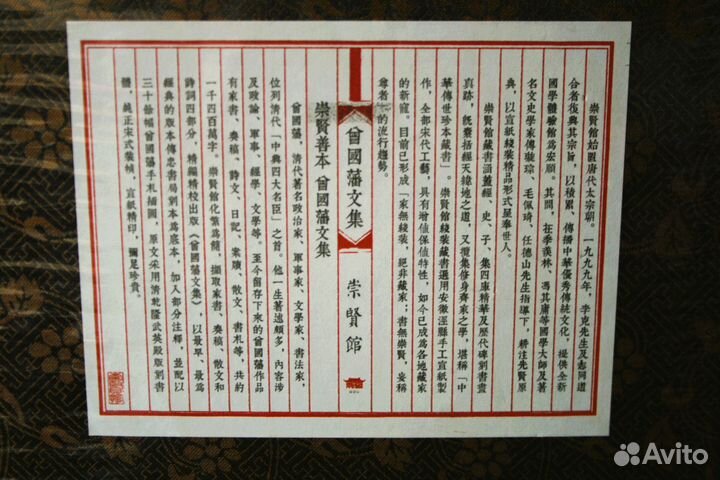 崇賢館始置唐代太宗朝。一九九九年，李克先生及志同道
合者復興其宗旨，以積累、傳播中華優秀傳統文化，提供全新
國學體驗館爲宏願。其間，在季羨林、馮其庸等國學大師及著
名文史學家傅璇琮、毛佩琦、任德山先生指導下，耕注先賢原
典，以宣紙綫裝精品形式呈奉世人。
崇賢館藏書涵蓋經、史、子、集四庫精華及歷代碑刻書畫
真跡，既囊括經天緯地之道，又攬集修身齊家之學，堪稱「中
華傳世珍本藏書」。崇賢館綫裝藏書選用安徽涇縣手工宣紙製
作，全部宋代工藝，具有增值保值特性，如今已成為各地藏家
的新寵。目前已形成「家無綫裝，絕非藏家；書無崇賢，妄稱
尊者」的流行趨勢。
曾國藩文集
崇賢館
崇賢善本 曾國藩文集
曾國藩，清代著名政治家、軍事家、文學家、書法家，
位列清代「中興四大名臣」之首。他一生著述頗多，內容涉
及政論、軍事、經學、文學等。至今留存下來的曾國藩作品
有家書、奏稿、詩文、日記、案牘、散文、書札等，共約
一千四百萬字。崇賢館化繁爲簡，擷取家書、奏稿、散文和
詩詞四部分，精編精校出版《曾國藩文集》，以最早、最爲
經典的版本傳忠書局刻本爲底本，加入部分注釋，並配以
三十餘幅曾國藩手札插圖，原文采用清乾隆武英殿版刻書
體，純正宋式裝幀，宣紙精印，彌足珍貴。
Avito